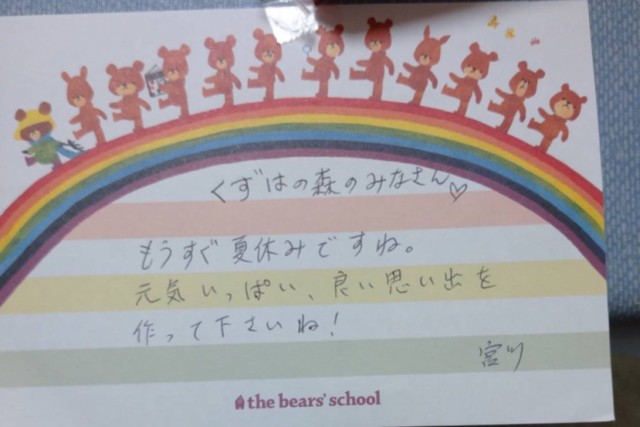 くずはの森のみなさん♡
もうすぐ夏休みですね。
元気いっぱい、良い思い出を
作って下さいね！
宮川
the bears' school